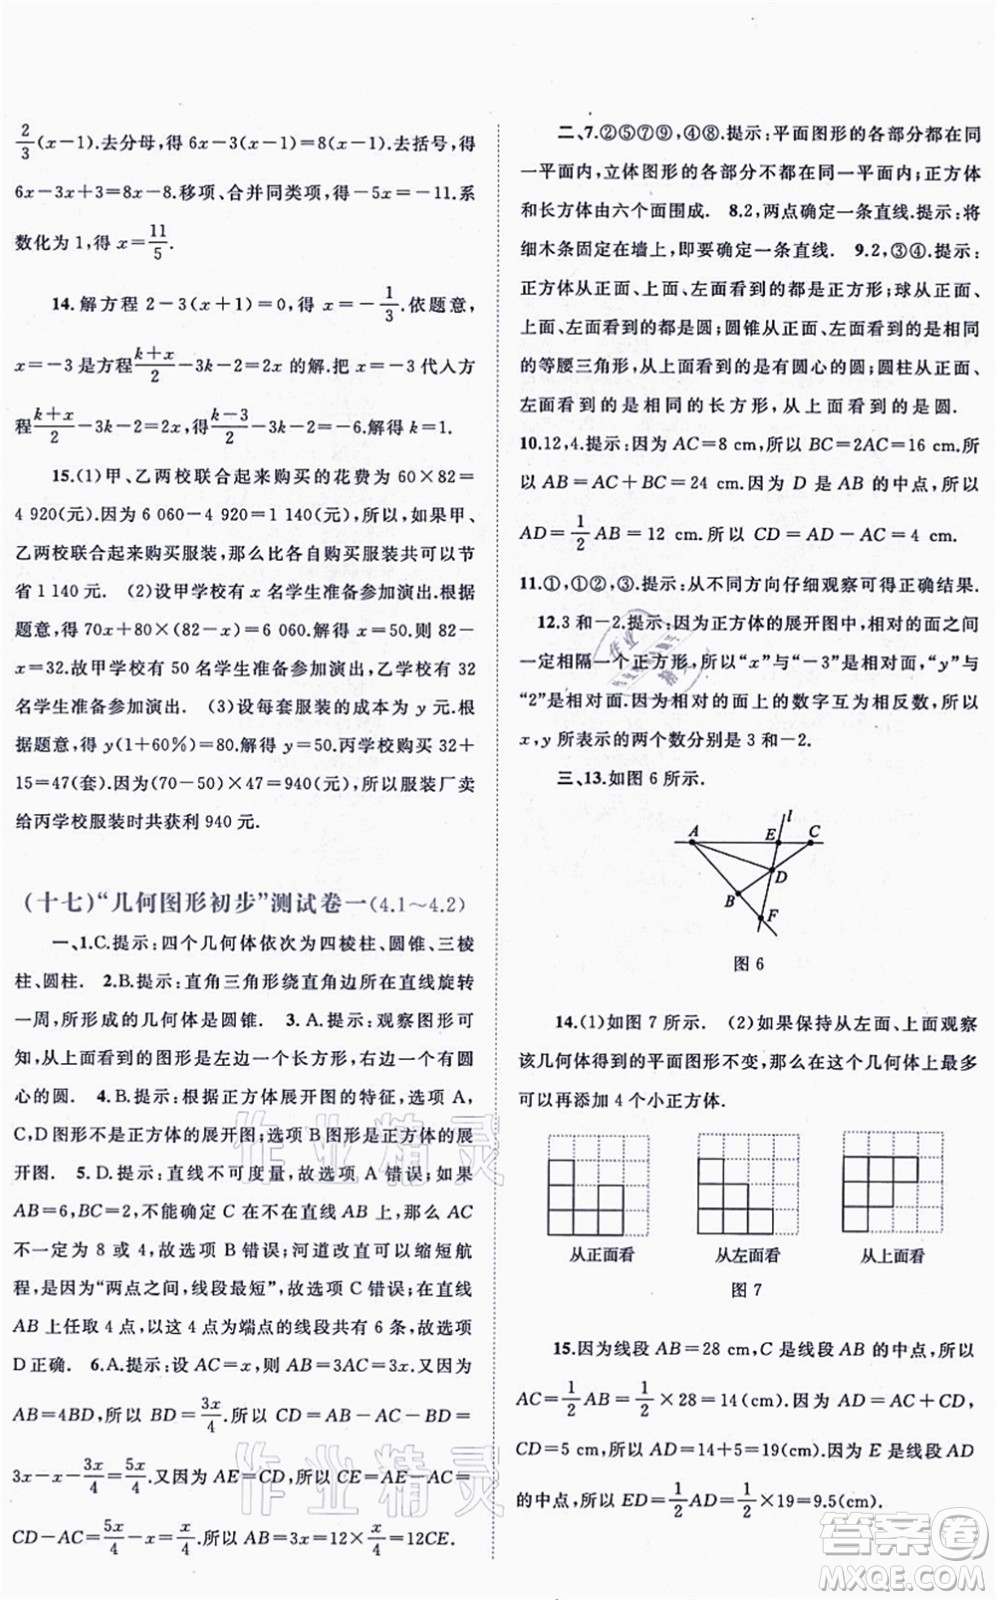 2/3(x-1).去分母,得 6x-3(x-1)=8(x-1).去括号,得
6x-3x+3=8x-8.移项、合并同类项,得-5x=-11.系
数化为 1,得 x=11/5.
14.解方程 2-3(x+1)=0,得 x=-1/3.依题意,
x=-3 是方程(k+x)/2-3k-2=2x 的解.把 x=-3 代入方
程(k+x)/2-3k-2=2x,得(k-3)/2-3k-2=-6.解得 k=1.
15.(1)甲、乙两校联合起来购买的花费为 60×82=
4 920(元).因为 6 060-4 920=1 140(元),所以,如果甲、
乙两校联合起来购买服装,那么比各自购买服装共可以节
省 1 140 元. (2)设甲学校有 x 名学生准备参加演出.根据
题意,得 70x+80×(82-x)=6 060.解得 x=50.则 82-
x=32.故甲学校有 50 名学生准备参加演出,乙学校有 32
名学生准备参加演出. (3)设每套服装的成本为 y 元.
根据题意,得 y(1+60%)=80.解得 y=50.丙学校购买 32+
15=47(套).因为(70-50)×47=940(元),所以服装厂卖
给丙学校服装时共获利 940 元.
(十七)“几何图形初步”测试卷一(4.1~4.2)
一、1.C.提示:四个几何体依次为四棱柱、圆锥、三棱
柱、圆柱. 2.B.提示:直角三角形绕直角边所在直线旋转
一周,所形成的几何体是圆锥. 3.A.提示:观察图形可
知,从上面看到的图形是左边一个长方形,右边一个有圆
心的圆. 4.B.提示:根据正方体展开图的特征,选项 A,
C,D 图形不是正方体的展开图;选项 B 图形是正方体的展
开图. 5.D.提示:直线不可度量,故选项 A 错误;如果
AB=6,BC=2,不能确定 C 在不在直线 AB 上,那么 AC
不一定为 8 或 4,故选项 B 错误;河道改直可以缩短航
程,是因为“两点之间,线段最短”,故选项 C 错误;在直线
AB 上任取 4 点,以这 4 点为端点的线段共有 6 条,故选项
D 正确. 6.A.提示:设 AC=x,则 AB=3AC=3x.又因为
AB=4BD,所以 BD=3x/4.所以 CD=AB-AC-BD=
3x-x-3x/4=5x/4.又因为 AE=CD,所以 CE=AE-AC=
CD-AC=5x/4-x=x/4.所以 AB=3x=12×x/4=12CE.
二、7.②⑤⑦⑨,④⑧.提示:平面图形的各部分都在同
一平面内,立体图形的各部分不都在同一平面内;正方体
和长方体由六个面围成. 8.2,两点确定一条直线.提示:将
细木条固定在墙上,即要确定一条直线. 9.2,③④.提示:
正方体从正面、上面、左面看到的都是正方形;球从正面、
上面、左面看到的都是圆;圆锥从正面、左面看到的是相同
的等腰三角形,从上面看到的是有圆心的圆;圆柱从正面、
左面看到的是相同的长方形,从上面看到的是圆.
10.12,4.提示:因为 AC=8 cm,所以 BC=2AC=16 cm.所
以 AB=AC+BC=24 cm.因为 D 是 AB 的中点,所以
AD=1/2 AB=12 cm.所以 CD=AD-AC=4 cm.
11.①,①②,③.提示:从不同方向仔细观察可得正确结果.
12.3 和-2.提示:因为正方体的展开图中,相对的面之间
一定相隔一个正方形,所以“x”与“-3”是相对面,“y”与
“2”是相对面.因为相对面上的数字互为相反数,所以
x,y 所表示的两个数分别是 3 和-2.
三、13.如图 6 所示.
A E l C
D
B
F
图 6
14.(1)如图 7 所示. (2)如果保持从左面、上面观察
该几何体得到的平面图形不变,那么在这个几何体上最多
可以再添加 4 个小正方体.
从正面看 从左面看 从上面看
图 7
15.因为线段 AB=28 cm,C 是线段 AB 的中点,所以
AC=1/2 AB=1/2×28=14(cm).因为 AD=AC+CD,
CD=5 cm,所以 AD=14+5=19(cm).因为 E 是线段 AD
的中点,所以 ED=1/2 AD=1/2×19=9.5(cm).
作业精灵
作业精灵
答案卷
MXQE.COM